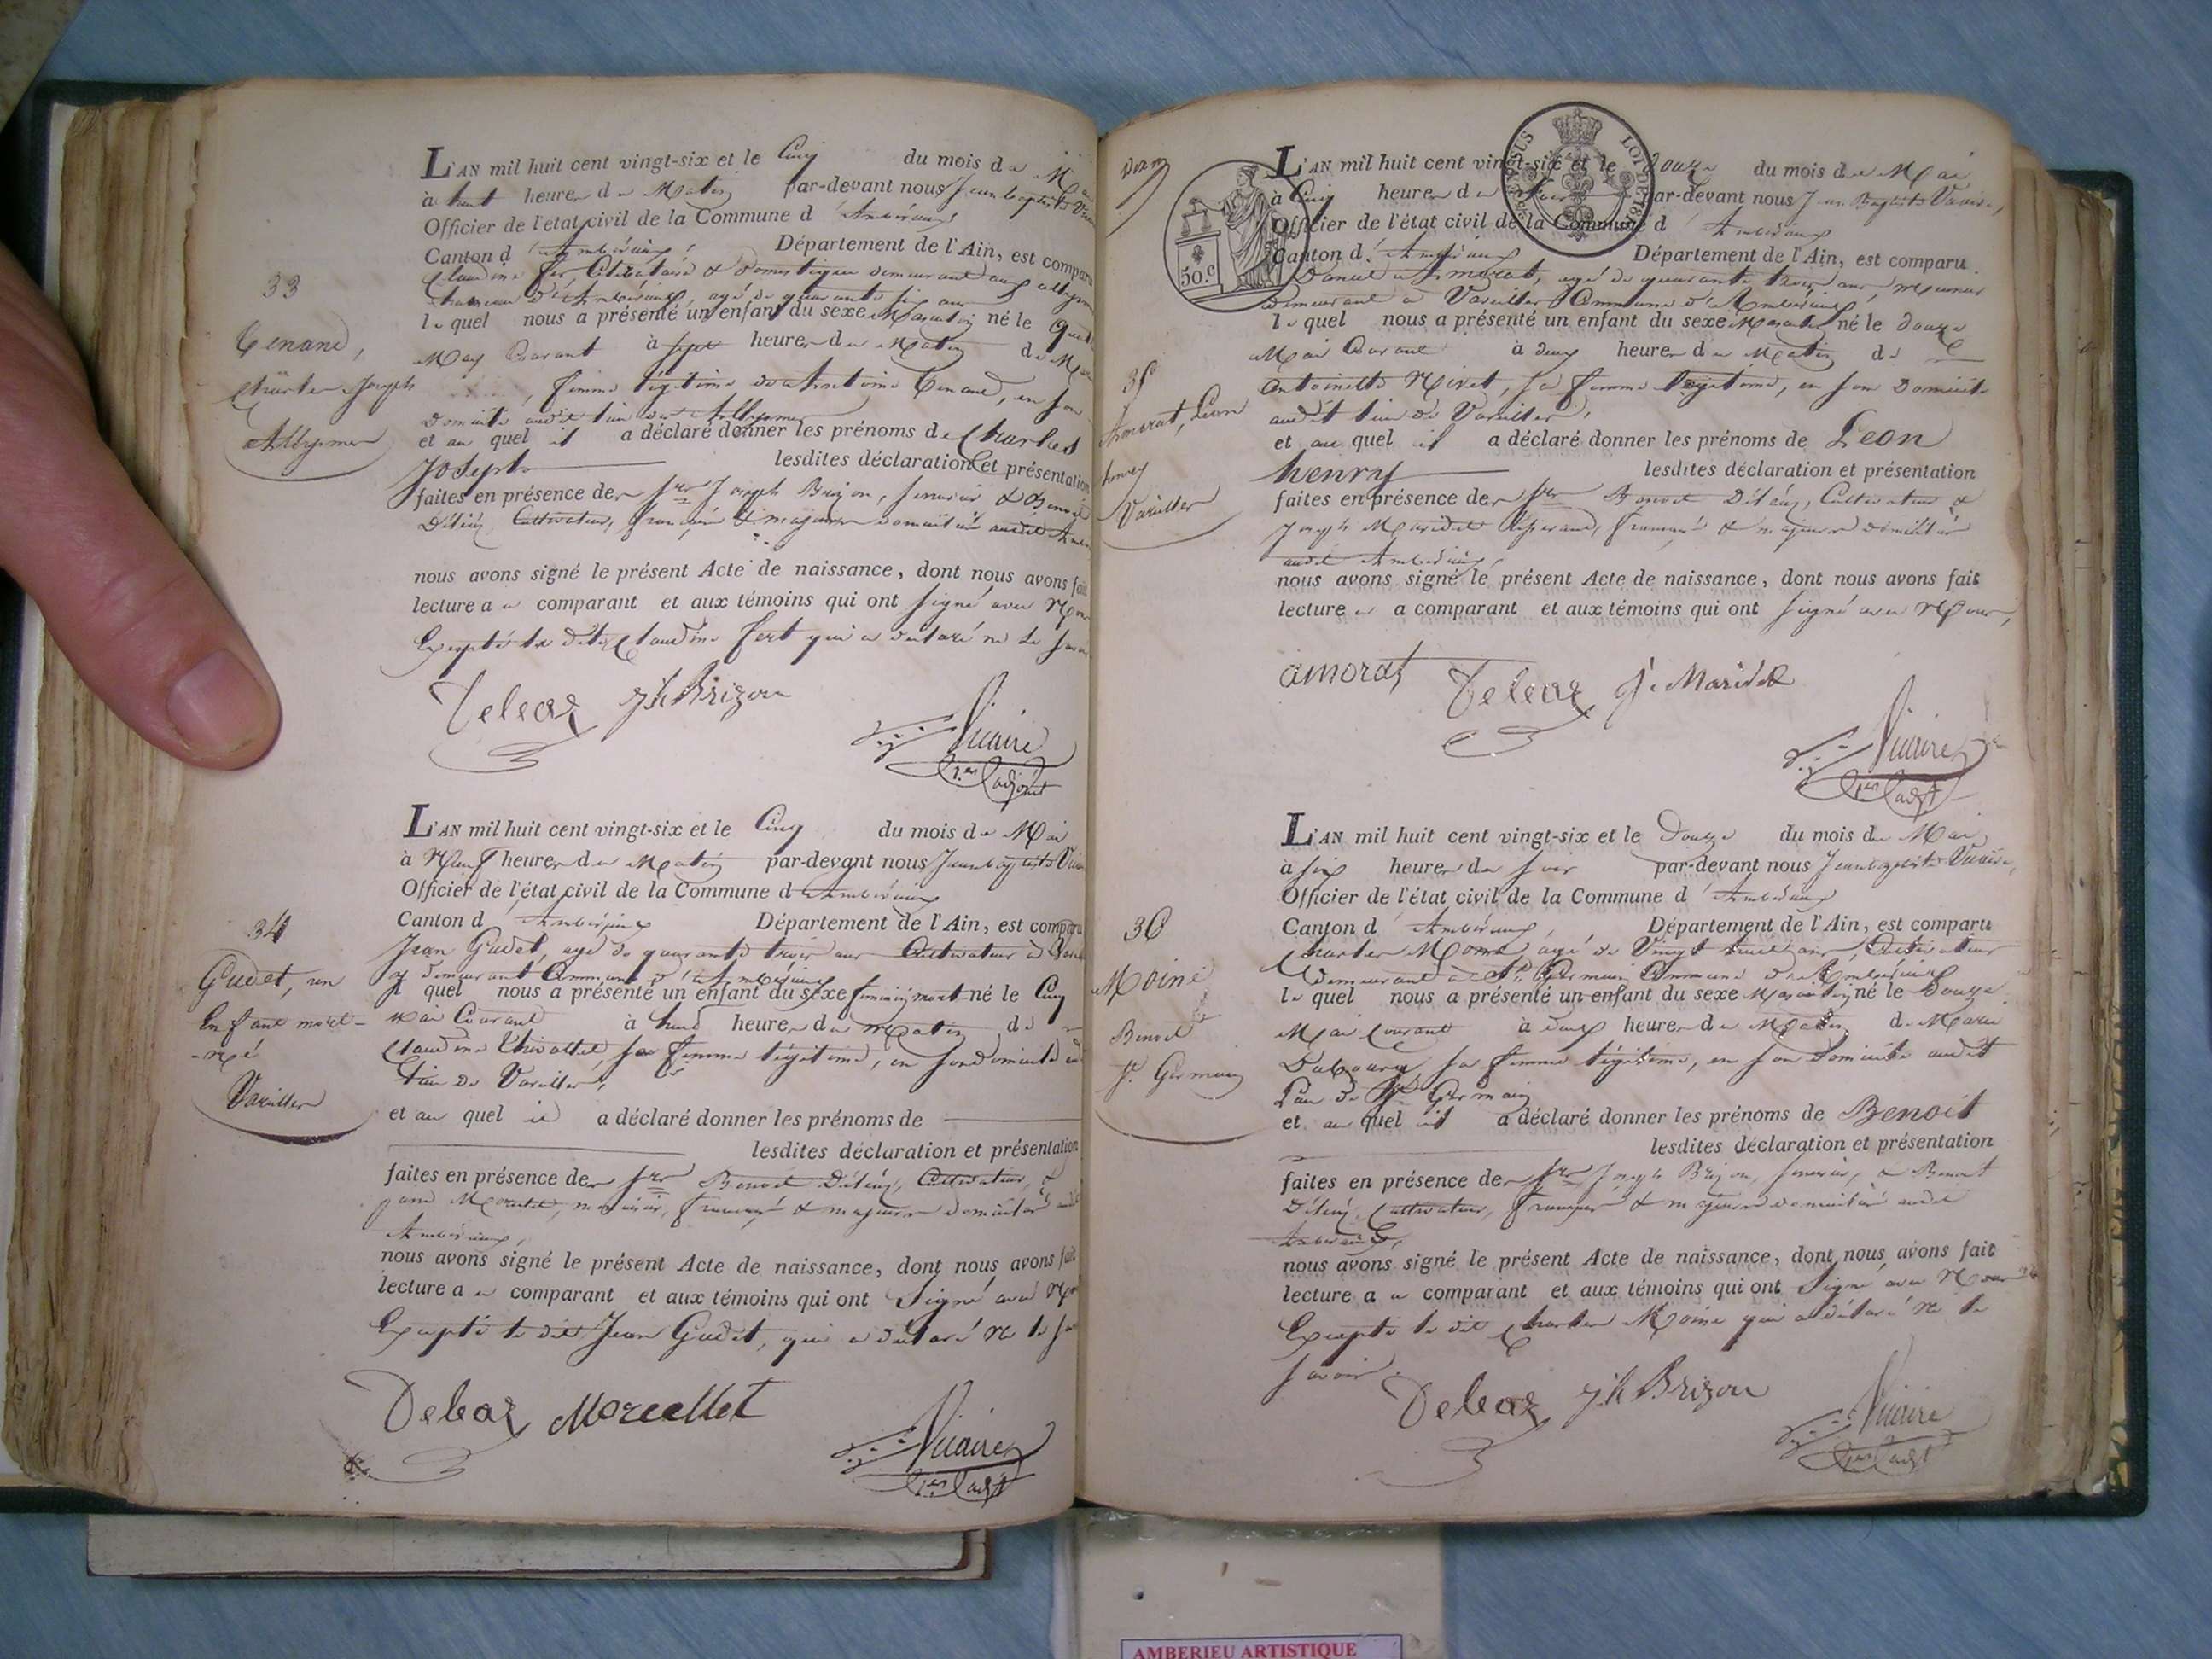 33
Tenand,
Charles Joseph
Allymes
L'AN mil huit cent vingt-six et le Cinq du mois de Mai
à huit heures du Matin par-devant nous Jean baptiste
Officier de l'état civil de la Commune d'Ambérieux
Canton d'Ambérieux, Département de l'Ain, est comparu
Claudine fer Célibataire & Domestique demeurant aux allymes
hameau d'Ambérieux, agé de quarante six ans
le quel nous a présenté un enfant du sexe Masculin né le
May Courant à sept heures du Matin de
femme légitime d'Antoine Tenand, en son
Domicile audit lieu des Allymes
et au quel il a déclaré donner les prénoms de Charles
Joseph lesdites déclaration et présentation
faites en présence des Srs Joseph Brizon, & Benoit
Déléaz, Cultivateur, français & majeurs domiciliés audit
nous avons signé le présent Acte de naissance, dont nous avons fait
lecture a u comparant et aux témoins qui ont signé avec Nous
Excepté la dite Claudine fert qui a déclaré ne le
Deleaz jh Brizon
Vicaire
1er adjoint
34
Gudet, un
Enfant mort-
-né
Vareilles
L'AN mil huit cent vingt-six et le Cinq du mois de Mai
à Neuf heures du Matin par-devant nous Jean baptiste
Officier de l'état civil de la Commune d'Ambérieux
Canton d'Ambérieux Département de l'Ain, est comparu
Jean Gudet, agé de quarante trois ans Cultivateur à
y demeurant Commune d'Ambérieux
le quel nous a présenté un enfant du sexe feminin mort né le Cinq
mai Courant à huit heures du Matin de
Claudine sa femme légitime, en son domicile
lieu de Vareilles,
et au quel il a déclaré donner les prénoms de
lesdites déclaration et présentation
faites en présence des Srs Benoit Déléaz, Cultivateur, &
français & majeurs domiciliés
Ambérieux,
nous avons signé le présent Acte de naissance, dont nous avons fait
lecture a u comparant et aux témoins qui ont Signé avec
Excepté le dit Jean Gudet, qui a déclaré ne le
Deleaz Morcellet
Vicaire
1er adjt
LOI DE
50.c
35
Amorat, Léon
henry
Vareilles
L'AN mil huit cent vingt-six et le Douze du mois de Mai
à Cinq heures du Soir par-devant nous Jean Baptiste Vicaire,
Officier de l'état civil de la Commune d'Ambérieux
Canton d'Ambérieux Département de l'Ain, est comparu
Amorat, agé de quarante trois ans, meunier
demeurant à Vareilles Commune d'Ambérieux,
le quel nous a présenté un enfant du sexe Masculin né le douze
Mai Courant à deux heures du Matin de
Antoinette Nivet, sa femme légitime, en son Domicile
audit lieu de Vareilles,
et au quel il a déclaré donner les prénoms de Léon
henry lesdites déclaration et présentation
faites en présence des Srs Benoit Déléaz, Cultivateur &
Joseph français & majeurs domiciliés
audit Ambérieux,
nous avons signé le présent Acte de naissance, dont nous avons fait
lecture a u comparant et aux témoins qui ont signé avec Nous,
amorat Deleaz
Vicaire
1er adjt
36
Moine
Benoit
St. Germain
L'AN mil huit cent vingt-six et le Douze du mois de Mai
à six heures du soir par-devant nous Jean baptiste Vicaire,
Officier de l'état civil de la Commune d'Ambérieux
Canton d'Ambérieux, Département de l'Ain, est comparu
Charles Moine agé de Vingt huit ans, Cultivateur
demeurant à St. Germain Commune d'Ambérieux
le quel nous a présenté un enfant du sexe Masculin né le Douze
Mai Courant à deux heures du Matin de Marie
sa femme légitime, en son Domicile audit
Lieu de St Germain
et au quel il a déclaré donner les prénoms de Benoit
lesdites déclaration et présentation
faites en présence des Srs Joseph Brizon, & Benoit
Déléaz, Cultivateur, français & majeurs domiciliés audit
Ambérieux,
nous avons signé le présent Acte de naissance, dont nous avons fait
lecture a u comparant et aux témoins qui ont Signé avec Nous
Excepté le dit Charles Moine qui a déclaré ne le
savoir.
Deleaz jh Brizon
Vicaire
1er adjt
AMBERIEU ARTISTIQUE